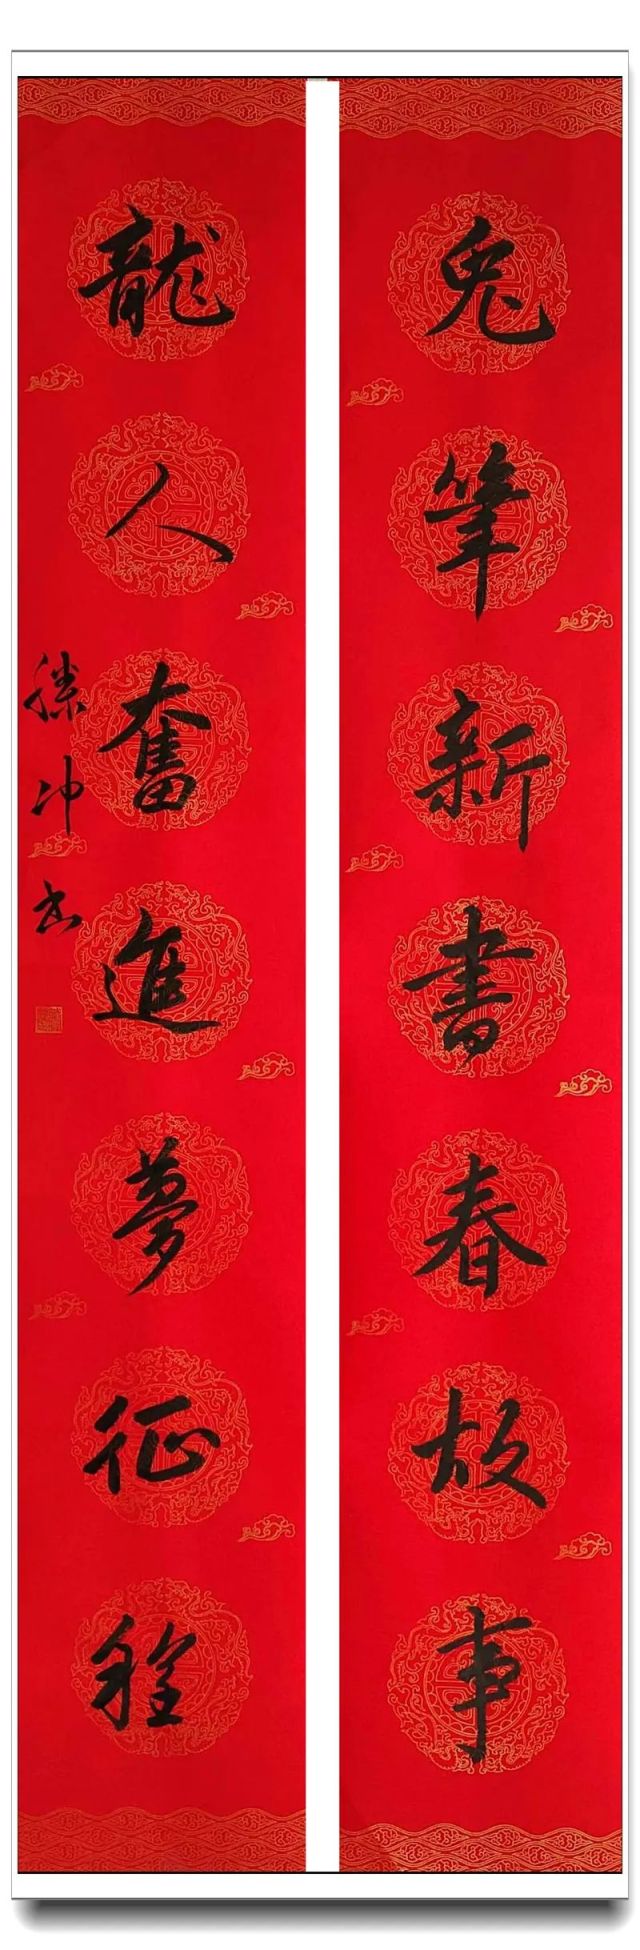 兔筆新書春故事
龍人奮進夢征程
滕冲书